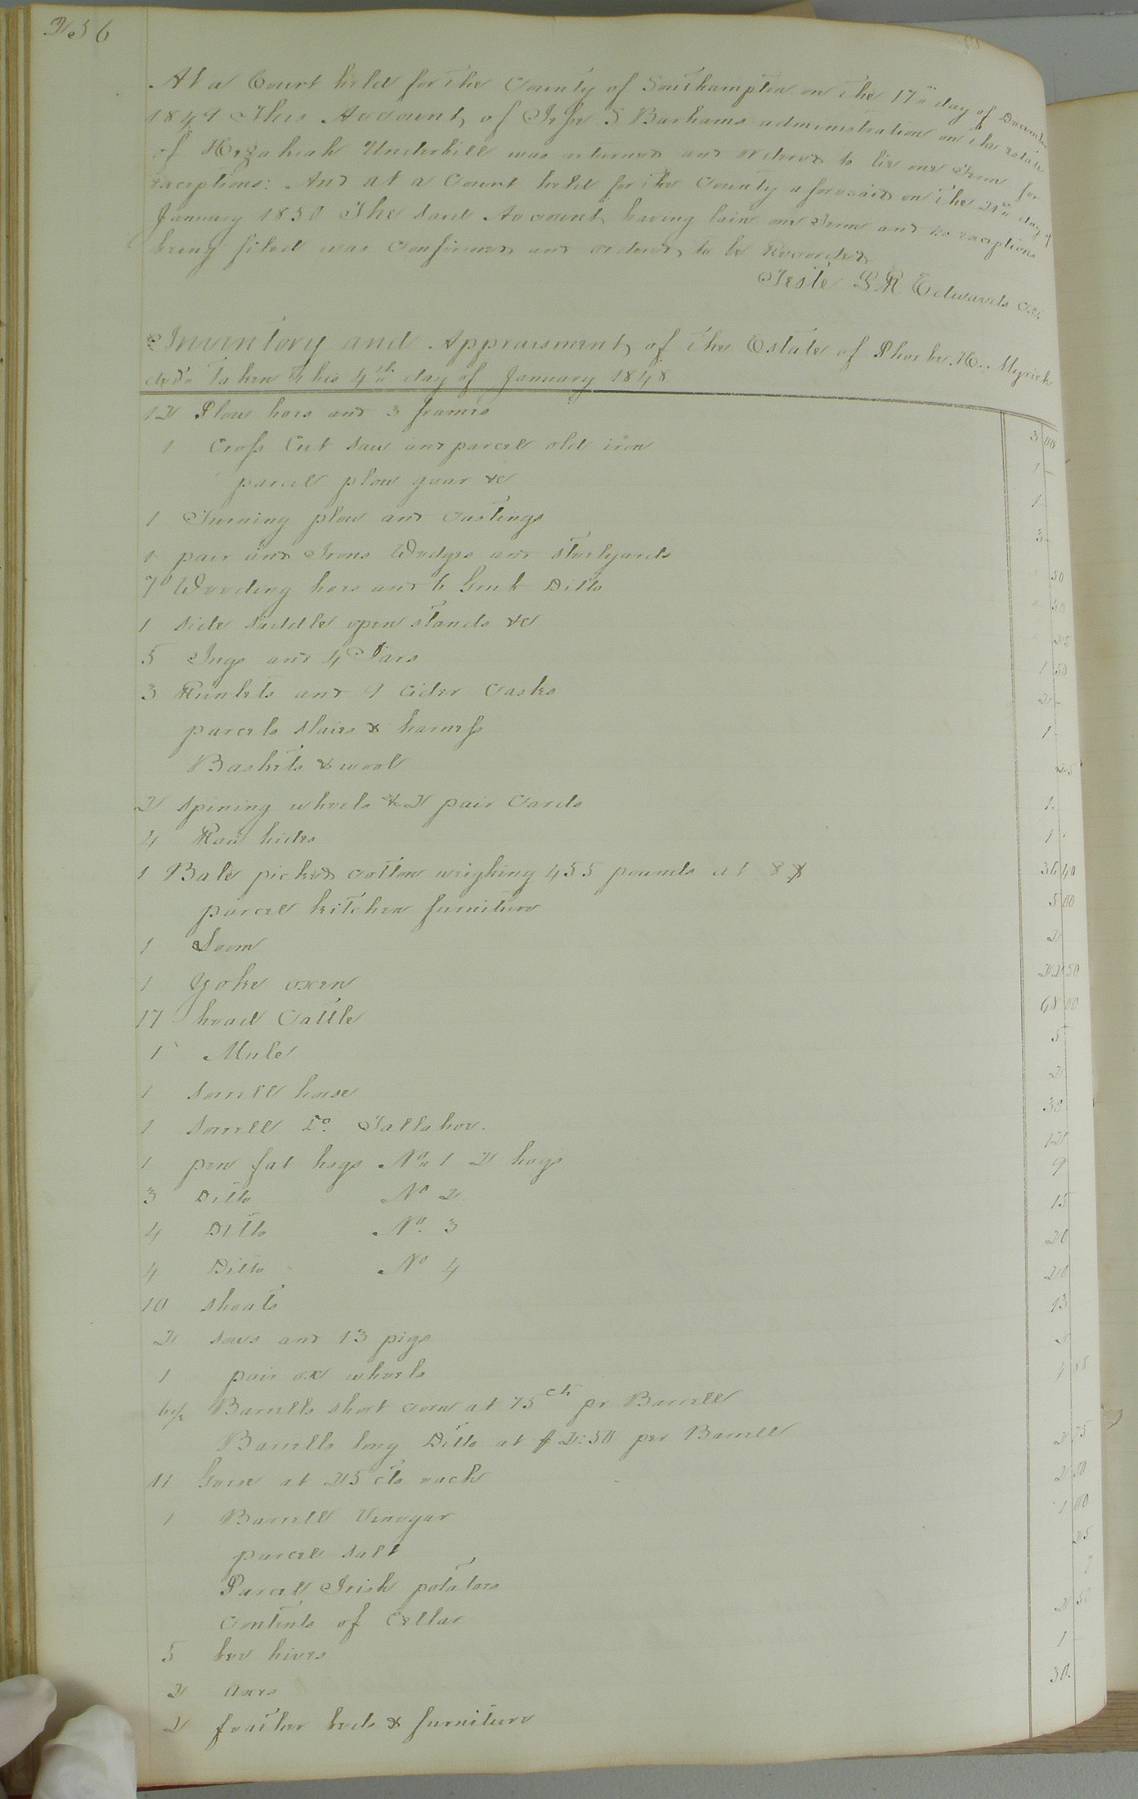 256
At a Court held for the County of Southampton on the 17th day of December
1849 This Account, of Jno. S Barhams administration on the estate
of Hezakiah Underhill was returned and ordered to lie one Term for
exceptions: And at a Court held for the County aforesaid on the 21st day of
January 1850 The said Account having lain one Term and no exceptions
being filed was Confirmed and ordered to be Recorded
Teste L R Edwards Clk.
Inventory and Appraisment, of the Estate of Phoebe H. Myrick
decd. taken this 4th day of January 1848
12 Plow hoes and 3 frames 3 00
1 Cross Cut saw and parcel old iron 1 -
parcel plow gear &c 1
1 Turning plow and castings 3 -
1 pair and Irons Wedges and stilyards 50
7 Weeding hoes and 6 Grub Ditto 50
1 side saddle open stands &c
5 Jugs and 4 Jars 1 50
3 Runlets and 9 cider casks 2 -
parcels slaies & harness 1
Baskets & wool 25
2 spining wheels & 2 pair Cards 1.
4 Raw hides 1
1 Bale picked cotton weighing 455 pounds at 8 36 40
parcel kitchen furniture 5 00
1 Loom 2
1 yoke oxen 22 50
17 head Cattle 68 00
1 Mule 5
1 Sorrell horse 2
1 Sorrell Do. 30
1 pen fat hogs No. 1 2 hogs 12
3 Ditto No 2 9
4 Ditto No. 3 15
4 Ditto No 4 20
10 shoats 20
2 sows and 13 pigs 13
1 pair ox wheels
Barrells short corn at 75cts pr Barrell
Barrells long Ditto at $ 2:50 per Barrell
11 Geese at 25 cts each 2 75
1 Barrell Vinegar 2 50
parcel salt 1 00
Parcel Irish potatoes 25
contents of Cellar
5 bee hives 2 50
2 axes 1
2 feather beds & furniture 30.